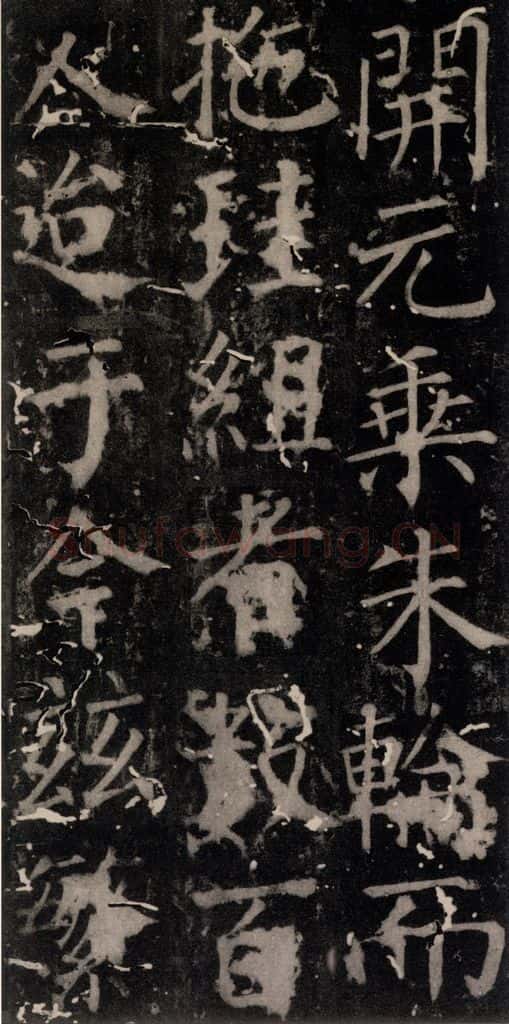 開元乘朱輪而
拖珪組者數百
人迨于今茲繁
Shufawang.CN